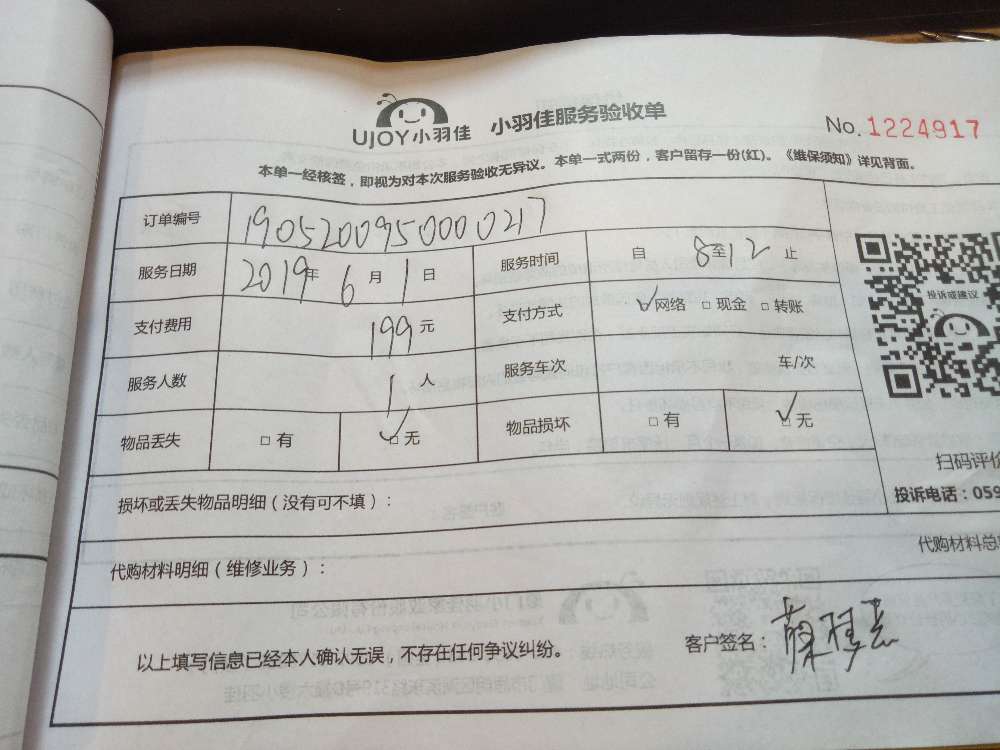 UJOY小羽佳 小羽佳服务验收单 No. 1224917
本单一经核签，即视为对本次服务验收无异议。本单一式两份，客户留存一份(红)。《维保须知》详见背面。
订单编号 1905200950000217
服务日期 2019年 6月 1日 服务时间 自 8至12 止
支付费用 199元 支付方式 ☑网络 □现金 □转账
服务人数 1人 服务车次 车/次
物品丢失 □有 ☑无 物品损坏 □有 ☑无
投诉或建议
扫码评价
投诉电话：059
损坏或丢失物品明细（没有可不填）：
代购材料明细（维修业务）： 代购材料总
以上填写信息已经本人确认无误，不存在任何争议纠纷。 客户签名：